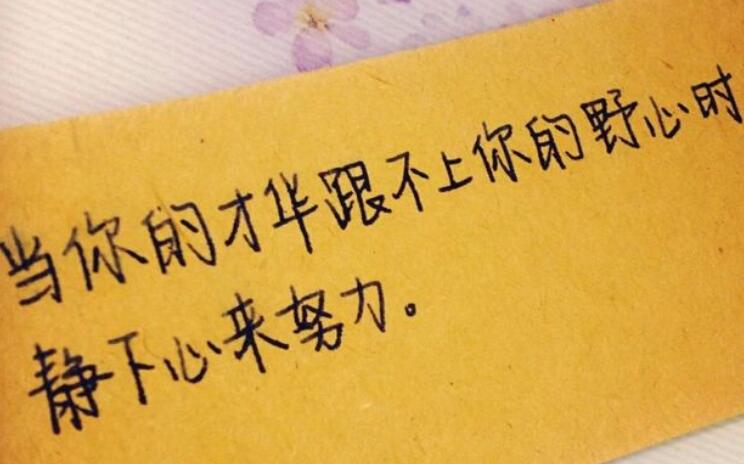 当你的才华跟不上你的野心时
静下心来努力。